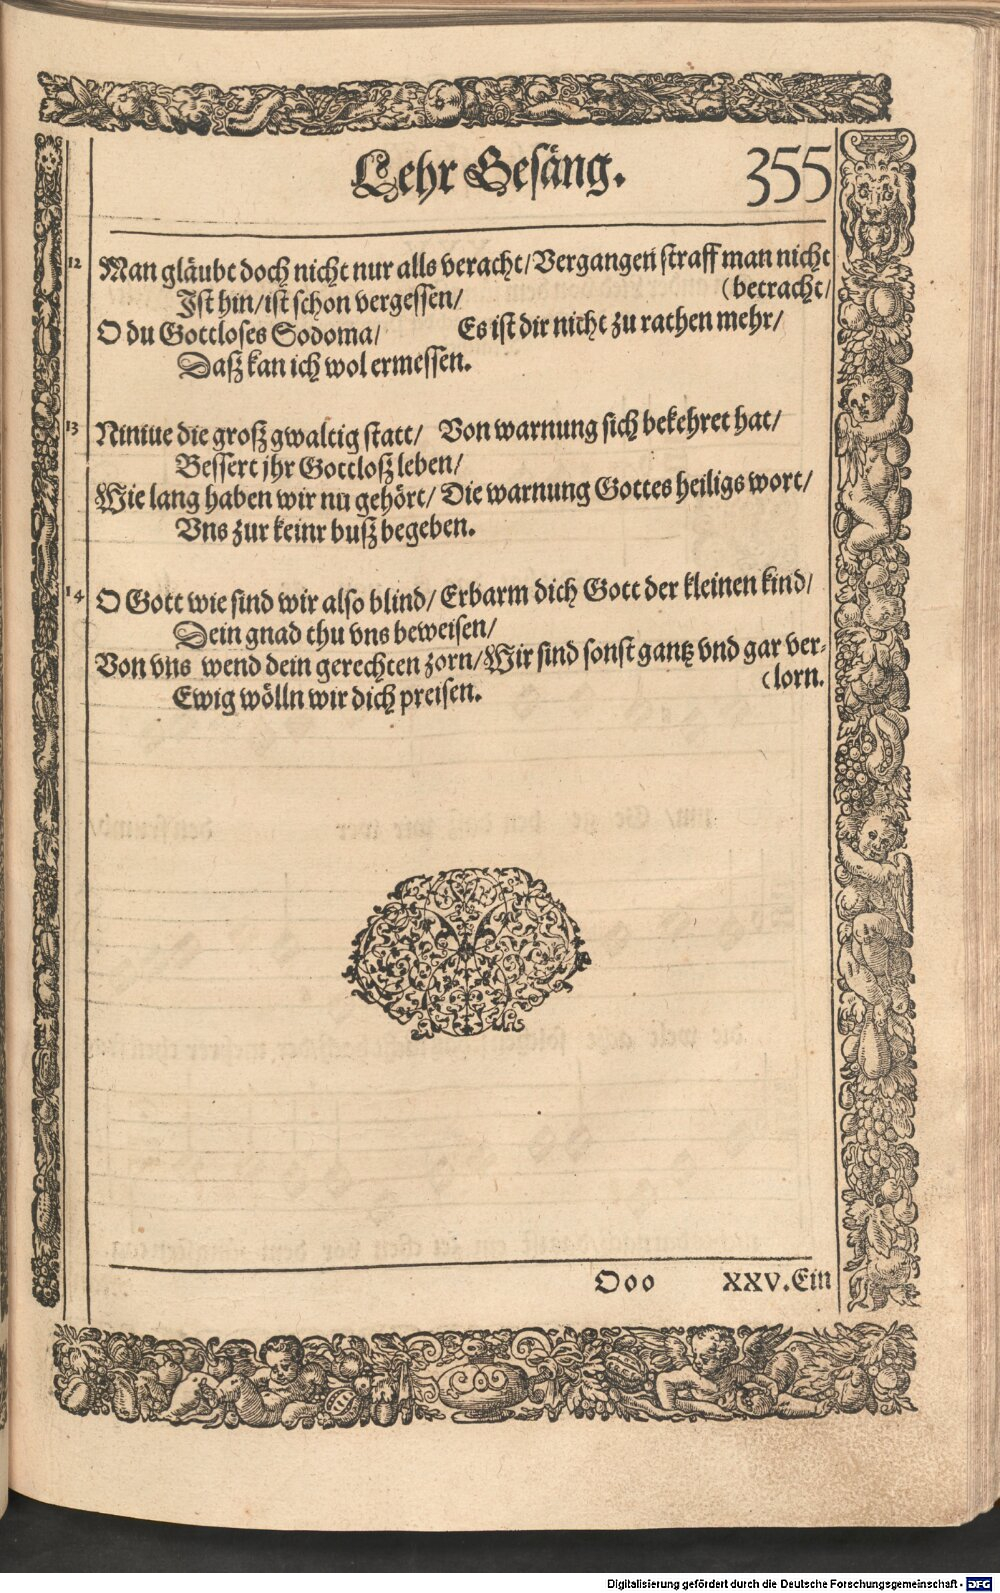 Lehr Gesäng. 355
12 Man gläubt doch nicht nur alls veracht/ Vergangen straff man nicht
Ist hin/ ist schon vergessen/ (betracht/
O du Gottloses Sodoma/ Es ist dir nicht zu rathen mehr/
Dasz kan ich wol ermessen.
13 Niniue die grosz gwaltig statt/ Von warnung sich bekehret hat/
Bessert jhr Gottlosz leben/
Wie lang haben wir nu gehört/ Die warnung Gottes heiligs wort/
Vns zur keinr busz begeben.
14 O Gott wie sind wir also blind/ Erbarm dich Gott der kleinen kind/
Dein gnad thu vns beweisen/
Von vns wend dein gerechten zorn/ Wir sind sonst gantz vnd gar ver-
(lorn.
Ewig wölln wir dich preisen.
Ooo XXV. Ein
Digitalisierung gefördert durch die Deutsche Forschungsgemeinschaft - DFG